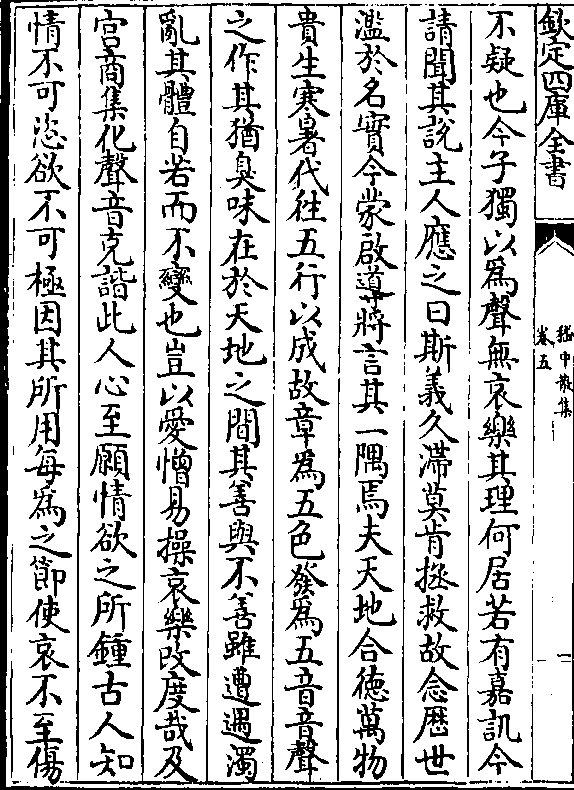 欽定四庫全書
嵇中散集
卷五
一
不疑也今子獨以為聲無哀樂其理何居若有嘉訊今
請聞其說主人應之曰斯義久滯莫肯拯救故念歷世
濫於名實今蒙啟導將言其一隅焉夫天地合德萬物
貴生寒暑代往五行以成故章為五色發為五音音聲
之作其猶臭味在於天地之間其善與不善雖遭遇濁
亂其體自若而不變也豈以愛憎易操哀樂改度哉及
宫商集化聲音克諧此人心至願情欲之所鍾古人知
情不可恣欲不可極因其所用每為之節使哀不至傷